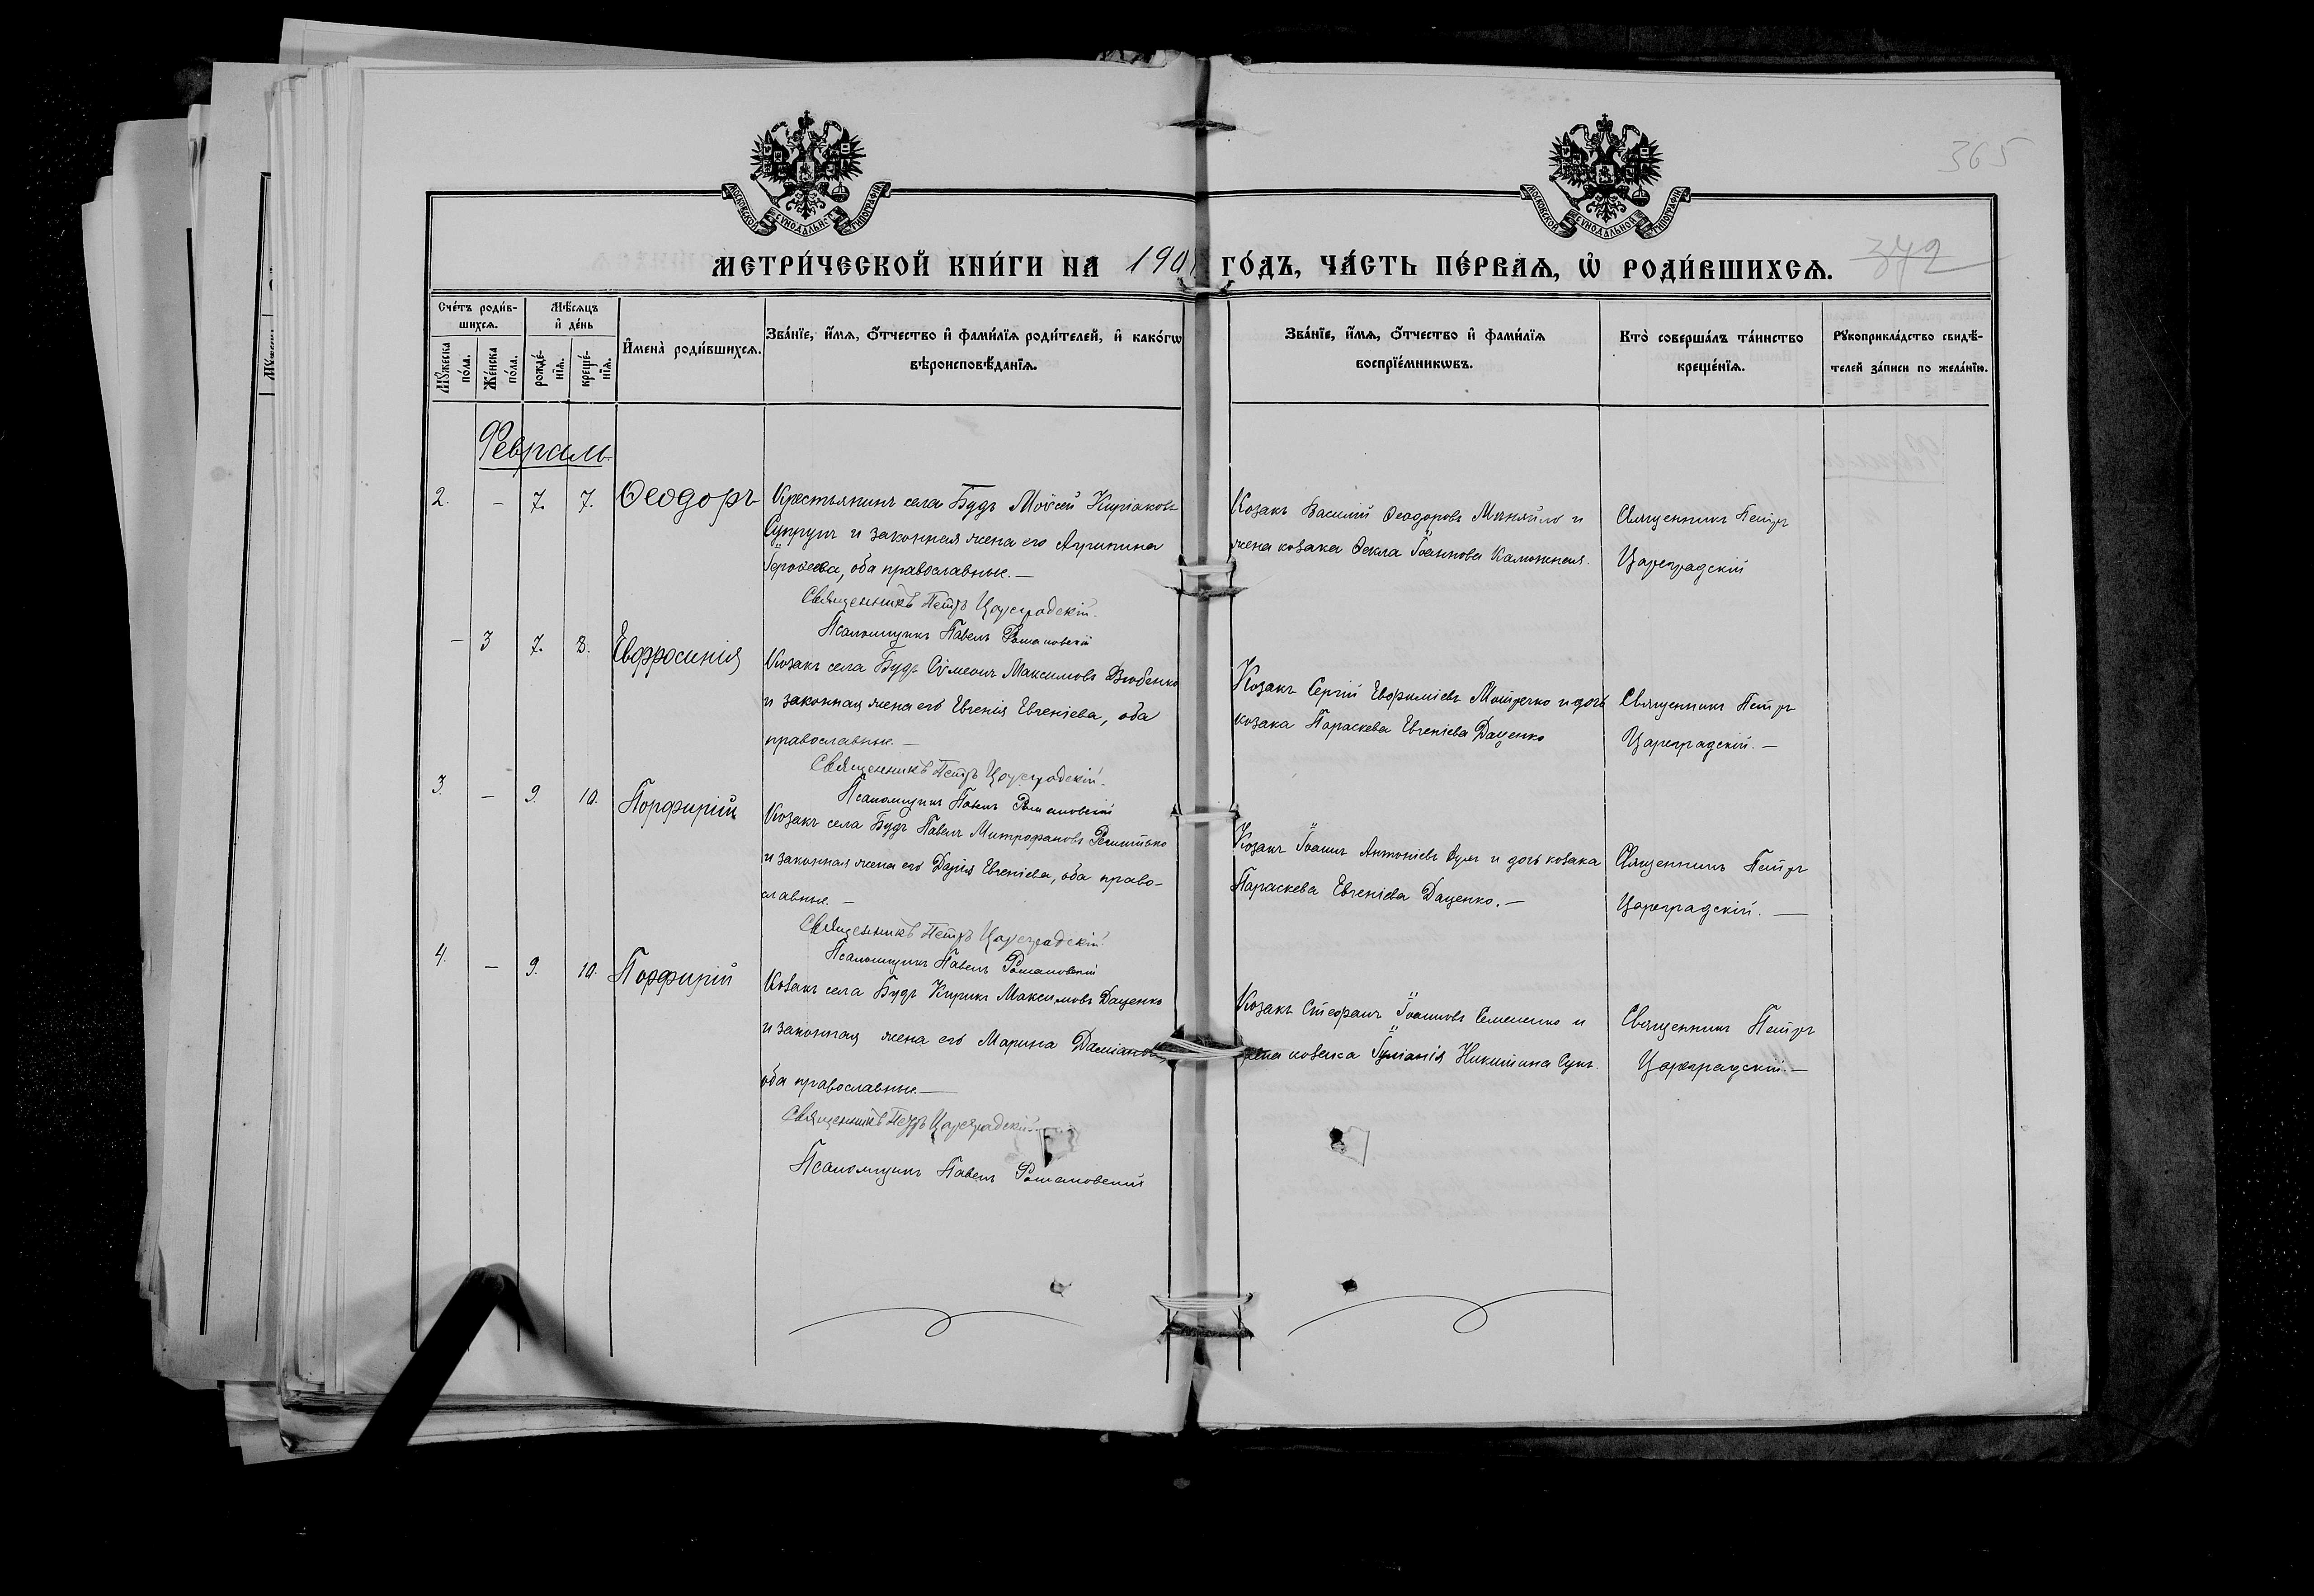 365
МОСКОВСКОЙ СУНОДАЛЬНОЙ ТИПОГРАФІИ
МОСКОВСКОЙ СУНОДАЛЬНОЙ ТИПОГРАФІИ
МЕТРИ́ЧЕСКОЙ КНИ́ГИ НА 190 ГО́ДЪ, ЧА́СТЬ ПЕ́РВАѦ, Ѡ҆ РОДИ́ВШИХСѦ.
372
Сче́тъ роди́в-
шихсѧ.
Мꙋ́жеска по́ла.
Же́нска по́ла.
Мѣ́сѧцъ
и҆ де́нь
рожде́-нїѧ.
креще́-нїѧ.
И҆мена̀ роди́вшихсѧ.
Зва́нїе, и҆́мѧ, ѻ҆́тчество и҆ фами́лїѧ роди́телей, и҆ како́гѡ
вѣроисповѣ́данїѧ.
Зва́нїе, и҆́мѧ, ѻ҆́тчество и҆ фами́лїѧ
воспрїе́мникѡвъ.
Кто̀ соверша́лъ та́инство
креще́нїѧ.
Рꙋкоприкла́дство свидѣ́-
телей за́писи по жела́нїю.
Февраль
2. – 7. 7. Ѳеодоръ
Крестьянинъ села Будъ Моѵсей Киріаковъ
Супрунъ и законная жена его Агрипина
оба православные. —
Священникъ Петръ Цареградскій.
Псаломщикъ Павелъ Романовскій
Козакъ Василій Ѳеодоровъ Миняйло и
жена козака Ѳекла Іоаннова
Священникъ Петръ
Цареградскій
– 3 7. 8. Евфросинія
Козакъ села Будъ Сѵмеонъ Максимовъ Дзюбенко
и законная жена его Евгенія Евгеніева, оба
православные. —
Священникъ Петръ Цареградскій.
Псаломщикъ Павелъ Романовскій
Козакъ Сергій Евфиміевъ и дочь
козака Параскева Евгеніева Даценко
Священникъ Петръ
Цареградскій. —
3. – 9. 10. Порфирій
Козакъ села Будъ Павелъ Митрофановъ
и законная жена его Дарія Евгеніева, оба право-
славные. —
Священникъ Петръ Цареградскій.
Псаломщикъ Павелъ Романовскій
Козакъ Іоаннъ Антоніевъ и дочь козака
Параскева Евгеніева Даценко. —
Священникъ Петръ
Цареградскій. —
4. – 9. 10. Порфирій
Козакъ села Будъ Кирикъ Максимовъ Даценко
и законная жена его Марина
оба православные. —
Священникъ Петръ Цареградскій.
Псаломщикъ Павелъ Романовскій
Козакъ Стефанъ Іоанновъ Семененко и
жена козака Іуліанія Никитина
Священникъ Петръ
Цареградскій. —